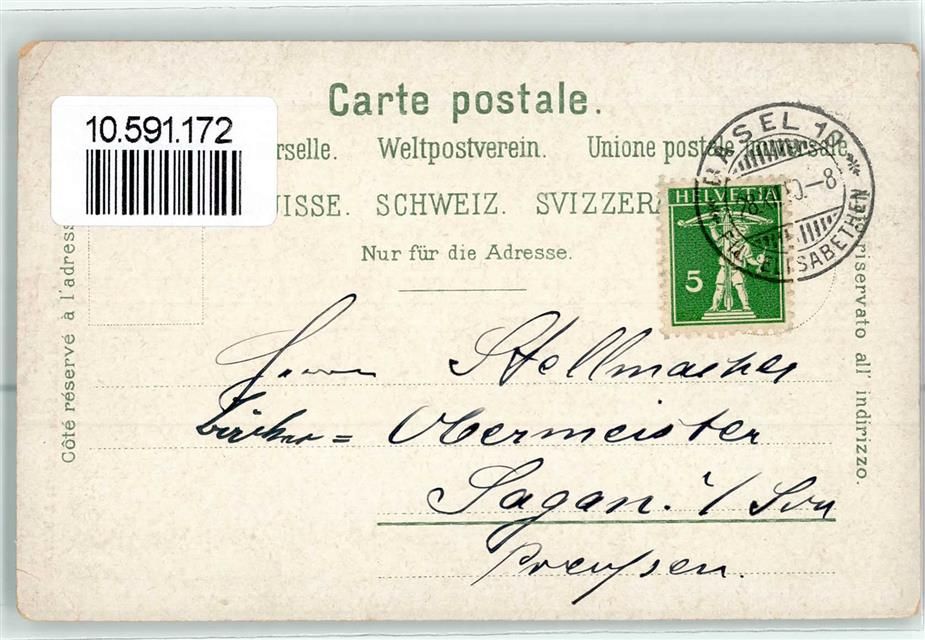 Carte postale.
10.591.172
rselle. Weltpostverein. Unione postale universale.
UISSE. SCHWEIZ. SVIZZERA
Nur für die Adresse.
Côté réservé à l'adresse
Lato riservato all' indirizzo.
BASEL 10
ST. ELISABETHEN
HELVETIA
5
Herrn Stellmacher
Obermeister
Sagan. i/
Preußen.